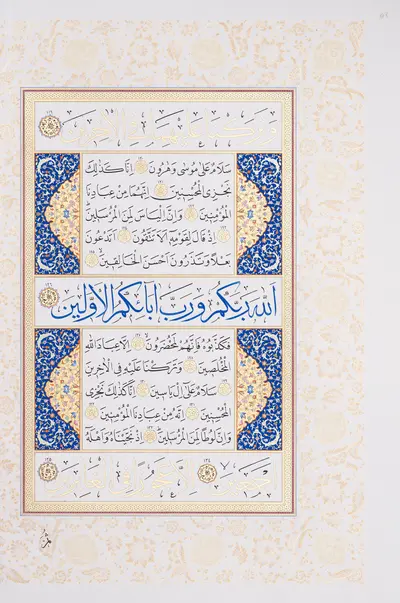 سَلَامٌ عَلَىٰ مُوسَىٰ وَهٰرُونَ اِنَّا كَذٰلِكَ
نَجْزِي الْمُحْسِنِينَ اِنَّهُمَا مِنْ عِبَادِنَا
الْمُؤْمِنِينَ وَاِنَّ اِلْيَاسَ لَمِنَ الْمُرْسَلِينَ
اِذْ قَالَ لِقَوْمِهِ اَلَا تَتَّقُونَ اَتَدْعُونَ
بَعْلًا وَتَذَرُونَ اَحْسَنَ الْخَالِقِينَ
اَللّٰهَ رَبَّكُمْ وَرَبَّ اٰبَائِكُمُ الْاَوَّلِينَ
فَكَذَّبُوهُ فَاِنَّهُمْ لَمُحْضَرُونَ اِلَّا عِبَادَ اللّٰهِ
الْمُخْلَصِينَ وَتَرَكْنَا عَلَيْهِ فِي الْاٰخِرِينَ
سَلَامٌ عَلَىٰ اِلْ يَاسِينَ اِنَّا كَذٰلِكَ نَجْزِي
الْمُحْسِنِينَ اِنَّهُ مِنْ عِبَادِنَا الْمُؤْمِنِينَ
وَاِنَّ لُوطًا لَمِنَ الْمُرْسَلِينَ اِذْ نَجَّيْنَاهُ وَاَهْلَهُ